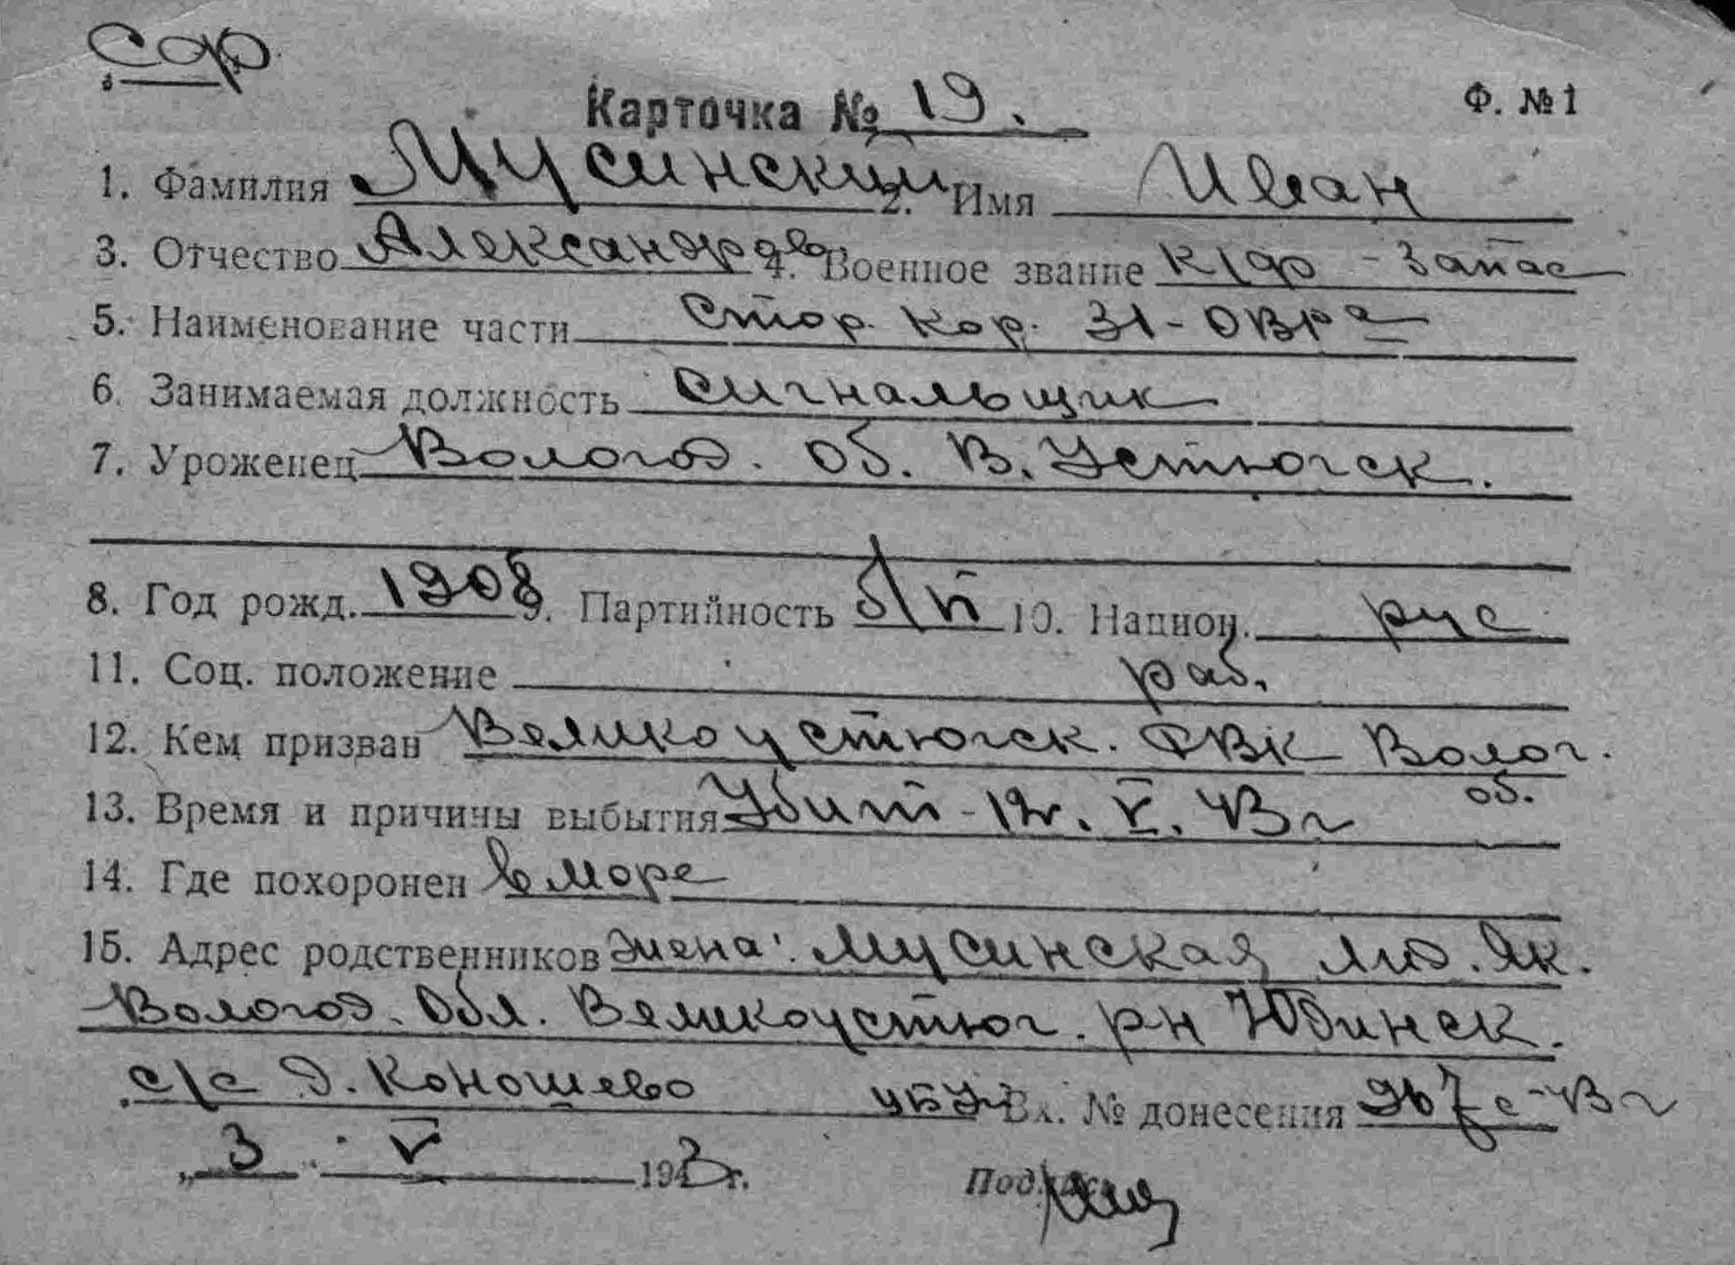 сдр
Карточка № 19.
Ф. № 1
1. Фамилия Мусинский 2. Имя Иван
3. Отчество Александров 4. Военное звание к/ф - запас
5. Наименование части Стор. Кор. 31 - ОВРа
6. Занимаемая должность сигнальщик
7. Уроженец Вологод. Об. В. Устюгск.
8. Год рожд. 1908 9. Партийность б/п 10. Национ. рус
11. Соц. положение раб.
12. Кем призван Великоустюгск. РВК Волог.
об.
13. Время и причины выбытия Убит - V. 43 г
14. Где похоронен в море
15. Адрес родственников жена: Мусинская Як.
Вологод. Обл. Великоустюг. рн Юдинск.
с/с д. Коношево Вх. № донесения 967с - 43 г
„ 3 . V 1943 г.
Подпись